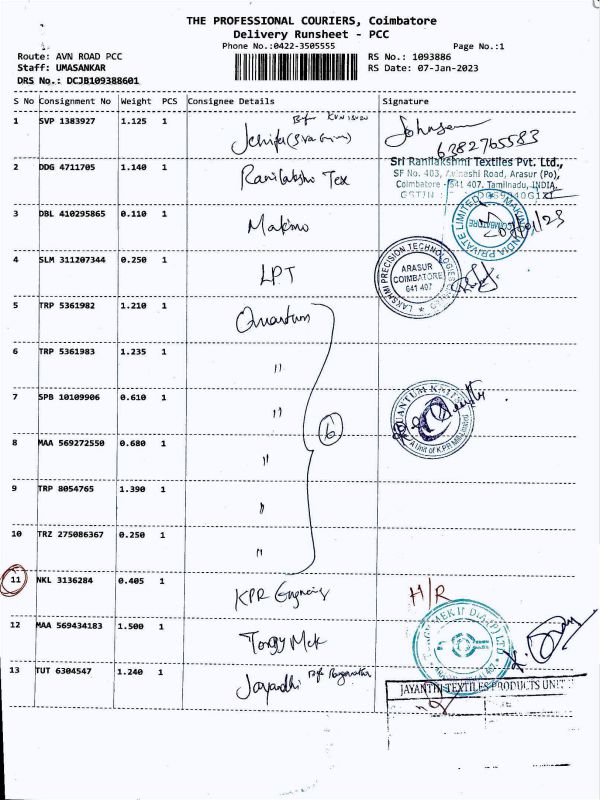 THE PROFESSIONAL COURIERS, Coimbatore
Delivery Runsheet - PCC
Phone No.:0422-3505555
Page No.:1
Route: AVN ROAD PCC
RS No.: 1093886
Staff: UMASANKAR
RS Date: 07-Jan-2023
DRS No.: DCJB109388601
S No Consignment No Weight PCS Consignee Details Signature
1 SVP 1383927 1.125 1
6382765583
2 DDG 4711705 1.140 1 Ranilakshmi Tex
Sri Ranilakshmi Textiles Pvt. Ltd.,
SF No. 403, Avinashi Road, Arasur (Po),
Coimbatore - 641 407. Tamilnadu, INDIA.
GSTIN
3 DBL 410295865 0.110 1 Makino
MAKINO INDIA PRIVATE LIMITED
COIMBATORE
4 SLM 311207344 0.250 1 LPT
LAKSHMI PRECISION TECHNOLOGIES LIMITED
ARASUR
COIMBATORE
641 407
5 TRP 5361982 1.210 1 Quantum
6 TRP 5361983 1.235 1 "
7 SPB 10109906 0.610 1 "
QUANTUM KNITS
A Unit of K.P.R Mill Limited
6
8 MAA 569272550 0.680 1 "
9 TRP 8054765 1.390 1 "
10 TRZ 275086367 0.250 1 "
11 NKL 3136284 0.405 1 KPR Engineering H/R
12 MAA 569434183 1.500 1 Tongy Mek
MEK INDIA (P) LTD
13 TUT 6304547 1.240 1 Jayandhi
JAYANTHI TEXTILES PRODUCTS UNIT